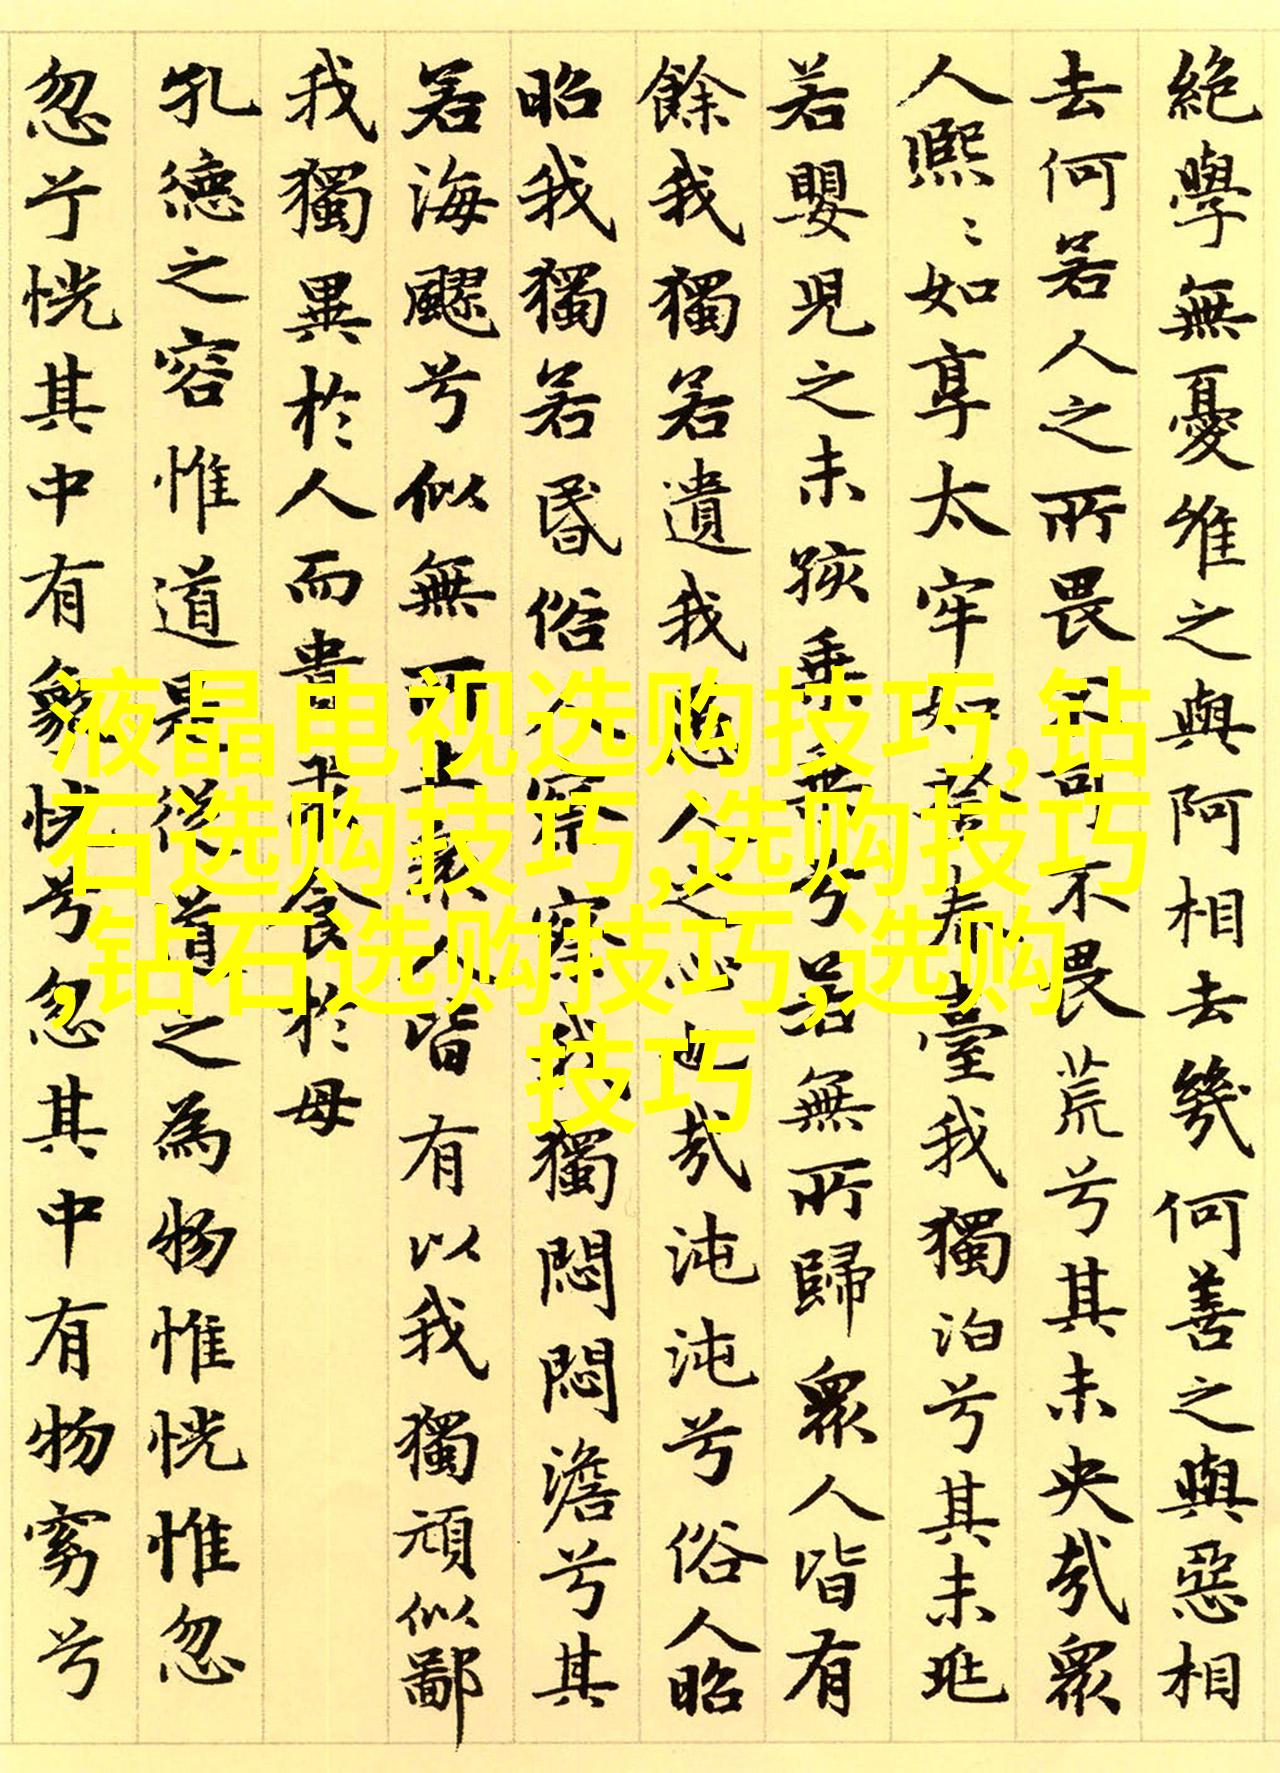 絕學無憂唯之與阿相去幾何善之與惡相
去何若人之所畏不可不畏荒兮其未央哉衆
人熙〻如享太牢如登春臺我獨泊兮其未兆
若嬰兒之未孩乗乗兮若無所歸衆人皆有
餘我獨若遺我愚人之心也哉沌沌兮俗人昭
昭我獨若昏俗人察察我獨悶悶澹兮其
若海飂兮似無所止衆人皆有以我獨頑似鄙
我獨異於人而貴求食於母
孔德之容惟道是從道之為物惟恍惟忽
忽兮恍其中有象恍兮忽其中有物窈兮
液晶电视选购技巧,钻
石选购技巧,选购技巧
,钻石选购技巧,选购
技巧